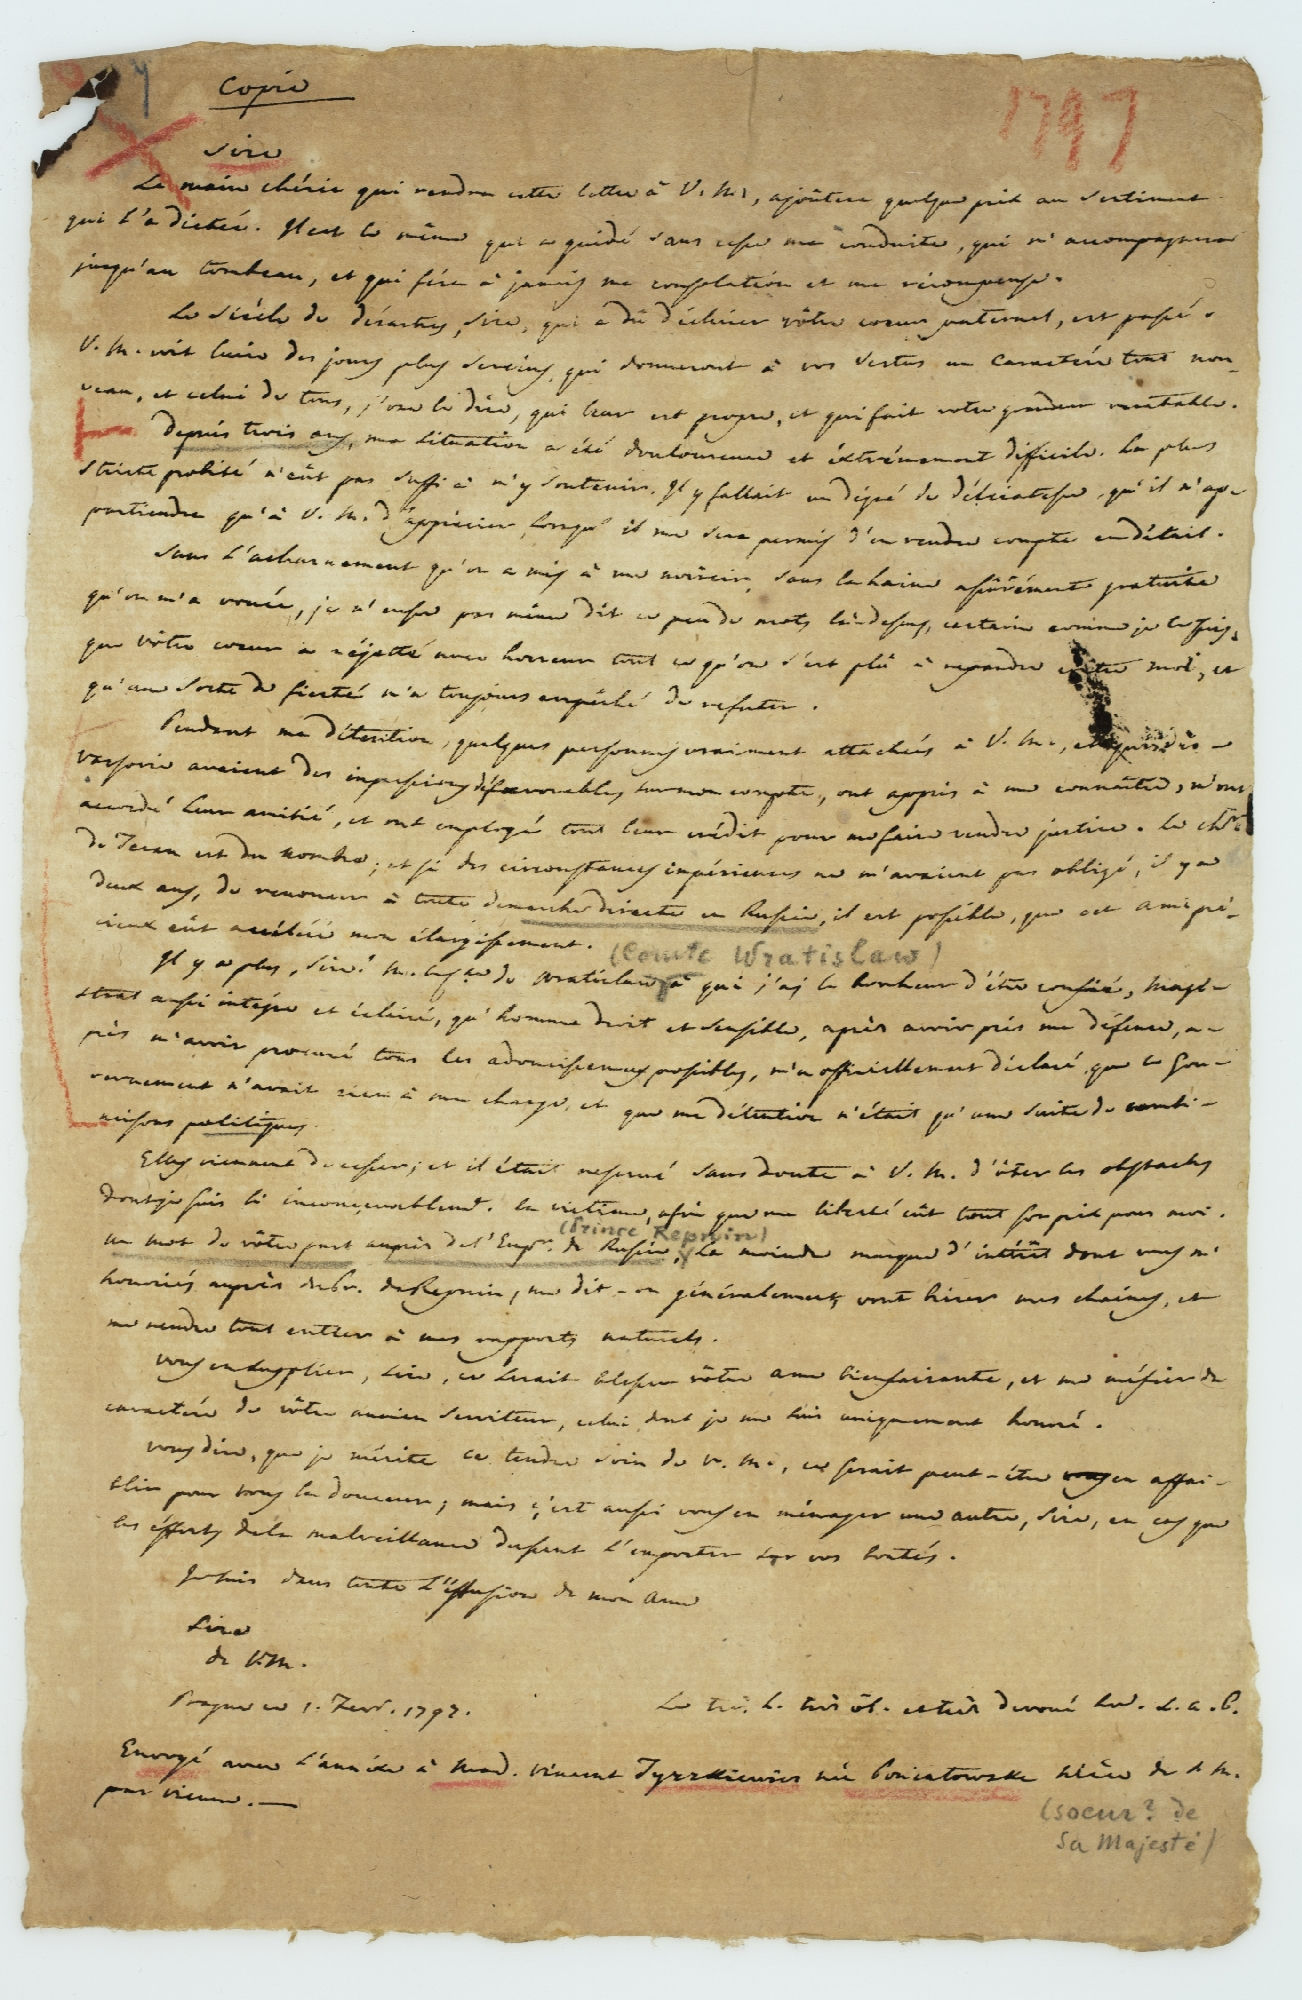 Copie
1797
Sire
La main chérie qui rendra cette lettre à V. M., ajoutera quelque prix au sentiment
qui l'a dictée. Il est le même qui a guidé sans cesse ma conduite, qui m'accompagnera
jusqu'au tombeau, et qui fera à jamais ma consolation et ma récompense.
Le siècle de désastres, Sire, qui a dû déchirer vôtre coeur paternel, est passé.
V. M. voit luire des jours plus sereins, qui donneront à vos vertus un caractère tout nou-
veau, et celui de tous, j'ose le dire, qui leur est propre, et qui fait votre grandeur véritable.
Depuis trois ans, ma situation a été douloureuse et éxtrémement difficile. La plus
stricte probité n'eût pas suffi à m'y soutenir. Il y fallait un dégré de délicatesse, qu'il n'ap-
partiendra qu'à V. M. d'apprécier, lorsqu'il me sera permis d'en rendre compte en détail.
Sans l'acharnement qu'on a mis à me noircir, sans la haine assûrément gratuite
qu'on m'a vouée, je n'eusse pas même dit ce peu de mots là-dessus, certain comme je le suis,
que vôtre coeur a réjetté avec horreur tout ce qu'on s'est plû à repandre contre moi, et
qu'une sorte de fierté m'a toujours empêché de refuter.
Pendant ma détention, quelques personnes vraiment attachées à V. M., et qui dès
Varsovie avaient des impressions défavorables sur mon compte, ont appris à me connaître, m'ont
accordé leur amitié, et ont employé tout leur crédit pour me faire rendre justice. Le
de est du nombre; et si des circonstances impérieuses ne m'avaient pas obligé, il y a
deux ans, de renoncer à toute demarche directe en Russie, il est possible, que cet ami pré-
cieux eût accéléré mon élargissement.
(Comte Wratislaw)
Il y a plus, Sire! M. le de Wratislaw à qui j'ai le bonheur d'être confié, magi-
strat aussi intègre et éclairé, qu'homme droit et sensible, après avoir pris ma défense, a-
près m'avoir procuré tous les adoucissemens possibles, m'a officiellement déclaré que le Gou-
vernement n'avait rien à ma charge, et que ma détention n'était qu'une suite de combi-
naisons politiques.
Elles viennent de cesser; et il était reservé sans doute à V. M. d'ôter les obstacles
dont je suis si inconcevablement la victime, afin que ma liberté eût tout son prix pour moi.
(Prince Repnin)
Un mot de vôtre part auprès de l'Empr. de Russie, la moindre marque d'intérêt dont vous m'
honoriés auprès du Pr. de Repnin, me dit-on généralement, vont briser mes chaines, et
me rendre tout entier à mes rapports naturels.
Vous en supplier, Sire, ce serait blesser vôtre ame bienfaisante, et me méfier du
caractère de vôtre ancien serviteur, celui dont je me suis uniquement honoré.
Vous dire, que je mérite ce tendre soin de V. M., ce serait peut-être en affai-
blir pour vous la douceur; mais c'est aussi vous en ménager une autre, Sire, en cas que
les éfforts de la malveillance dussent l'emporter sur vos bontés.
Je suis dans toute l'éffusion de mon ame
Sire
de V. M.
Prague ce 1. 1797.
Le très h. très ob. et très devoué L. a. P.
Envoyé avec l'année à Mad. Vincent Tyszkiewicz née Poniatowska nièce de S. M.
par Vienne. —
(soeur? de
Sa Majesté)